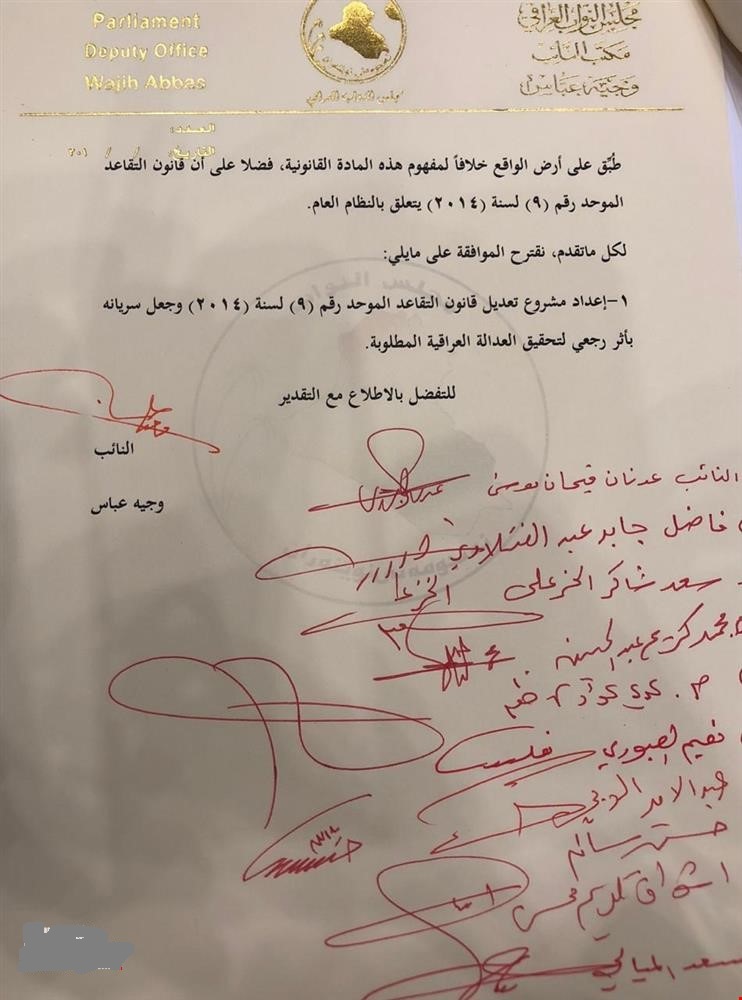 Parliament
Deputy Office
Wajih Abbas
مجلس النواب العراقي
مكتب النائب
وجيه عباس
العدد:
التاريخ: / / ٢٠١
طُبِّق على أرض الواقع خلافاً لمفهوم هذه المادة القانونية، فضلا على أن قانون التقاعد
الموحد رقم (٩) لسنة (٢٠١٤) يتعلق بالنظام العام.
لكل ماتقدم، نقترح الموافقة على مايلي:
١-إعداد مشروع تعديل قانون التقاعد الموحد رقم (٩) لسنة (٢٠١٤) وجعل سريانه
بأثر رجعي لتحقيق العدالة العراقية المطلوبة.
للتفضل بالاطلاع مع التقدير
النائب
وجيه عباس
النائب عدنان فيحان موسى
فاضل جابر عبد الفتلاوي
سعد شاكر الخزعلي
محمد كريم عبد الحسن
نعيم العبودي
عبد الامير
حسن سالم
اشواق كريم محسن
سعد الميالي